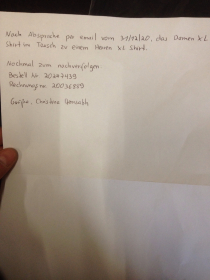 Nach Absprache per email vom 31/12/20, das Damen XL
Shirt im Tausch zu einem Herren XL Shirt.
Nochmal zum nachverfolgen
Bestell Nr. 20297939
Rechnungsnr. 20036809
Grüße, Christine